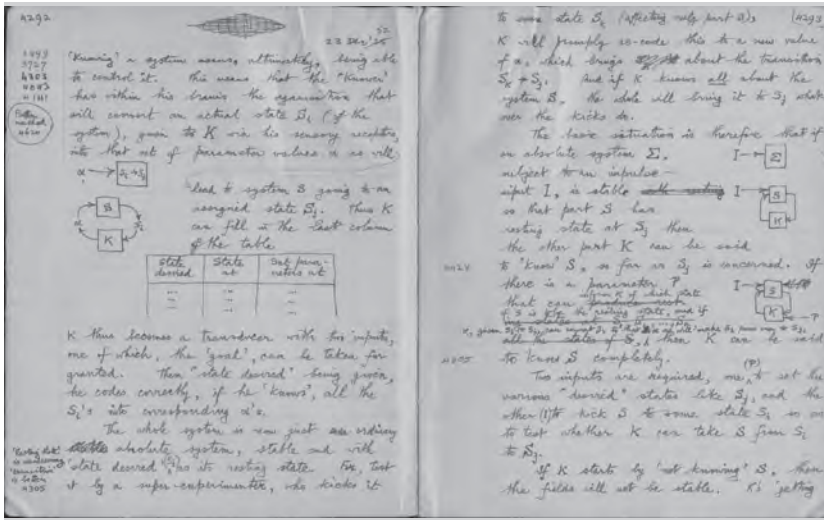 4292
52
23 Dec '52
'Knowing' a system means, ultimately, being able
to control it. This means that the 'Knower'
has within his brain the organisation that
will convert an actual state Si (of the
system), given to K via his sensory receptors,
into that set of parameter values α as will
α → Si → Sj
lead to system S going to an
assigned state Sj. Thus K
can fill in the last column
of the table
S
α
Si
K
State desired
State at
Set parameters at
... ... ...
... ... ...
... ... ...
K thus becomes a transducer with two inputs,
one of which, the 'goal', can be taken for
granted. Then "state desired" being given,
he codes correctly, if he 'knows', all the
Si's into corresponding α's.
The whole system is now just an ordinary
absolute system, stable and with
'state desired' as its resting state. For, test
it by a super-experimenter, who kicks it
4305
4293
to some state Sk (affecting only part S);
K will promptly re-code this to a new value
of α, which brings about the transition
Sk → Sj. And if K knows all about the
system S, the whole will bring it to Sj what
ever the kicks do.
The basic situation is therefore that if
an absolute system Σ,
subject to an impulse-
input I, is stable
so that part S has
resting state at Sj then
the other part K can be said
to 'know' S, so far as Sj is concerned. If
there is a parameter P
that can
all the states of S, then K can be said
to know S completely.
I → Σ
I → S
K
I → S
K ← P
Two inputs are required, one (P) to set the
various "desired" states like Sj, and the
other (I) to kick S to some state Si so as
to test whether K can take S from Si
to Sj.
If K starts by 'not knowing' S, then
the fields will not be stable. K's 'getting